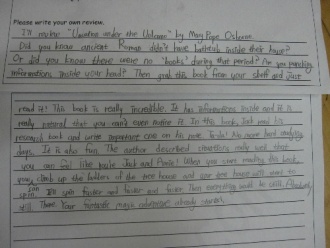 Please write your own review.
I'll review "Vacation under the Volcano" by Mary Pope Osborne.
Did you know ancient Roman didn't have bathtub inside their house?
Or did you know there were no 'books' during that period? Are you punching
informations inside your head? Then grab this book from your shelf and just
read it! This book is really incredible. It has informations inside and it is
really natural that you can't even notice it. In this book, Jack had his
research book and write important one on his note. Tada! No more hard studying
days. It is also fun. The author described situations really well that
you can feel like you're Jack and Annie! When you start reading this book,
you climb up the ladders of the tree house and our tree house will start to
spin. It'll spin faster and faster and faster. Then everything will be still. Absolutely
still. There. Your fantastic adventure already started.